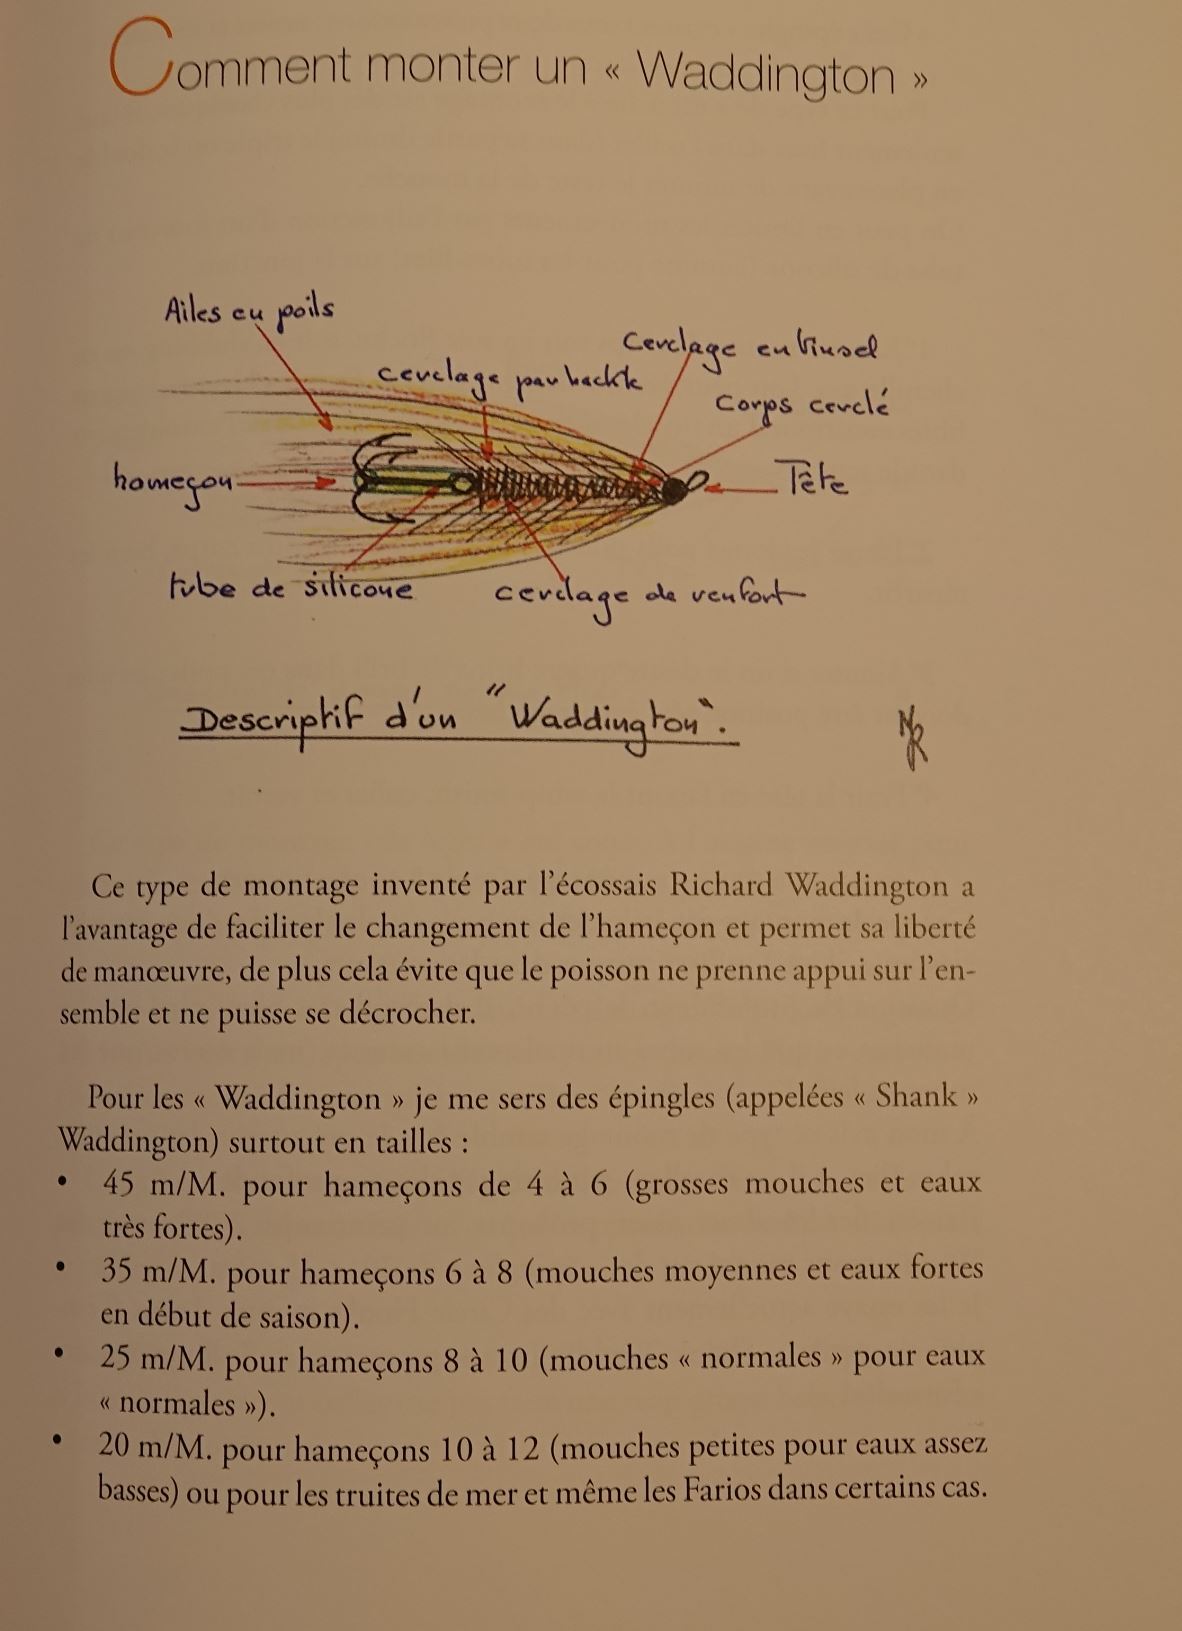 Comment monter un « Waddington »
Ailes en poils
Cerclage en tinsel
cerclage par hackle
Corps cerclé
hameçon
Tête
tube de silicone
cerclage de renfort
Descriptif d'un "Waddington".
Ce type de montage inventé par l'écossais Richard Waddington a
l'avantage de faciliter le changement de l'hameçon et permet sa liberté
de manœuvre, de plus cela évite que le poisson ne prenne appui sur l'en-
semble et ne puisse se décrocher.
Pour les « Waddington » je me sers des épingles (appelées « Shank »
Waddington) surtout en tailles :
• 45 m/M. pour hameçons de 4 à 6 (grosses mouches et eaux
très fortes).
• 35 m/M. pour hameçons 6 à 8 (mouches moyennes et eaux fortes
en début de saison).
• 25 m/M. pour hameçons 8 à 10 (mouches « normales » pour eaux
« normales »).
• 20 m/M. pour hameçons 10 à 12 (mouches petites pour eaux assez
basses) ou pour les truites de mer et même les Farios dans certains cas.